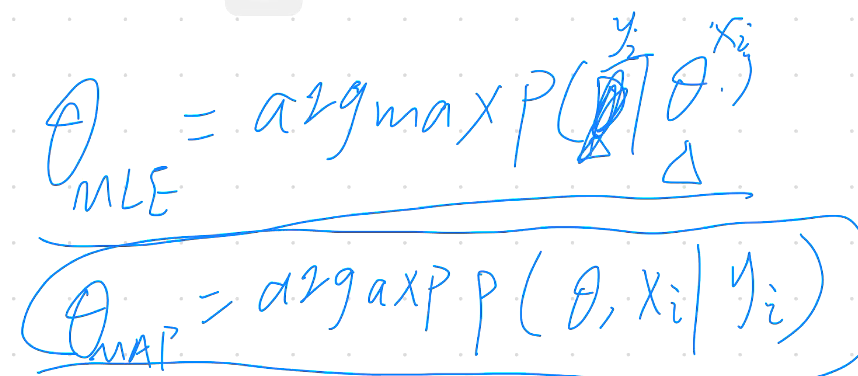 θ_MLE = argmax P(y_i | θ, x_i)
θ_MAP = argaxp P(θ, x_i | y_i)